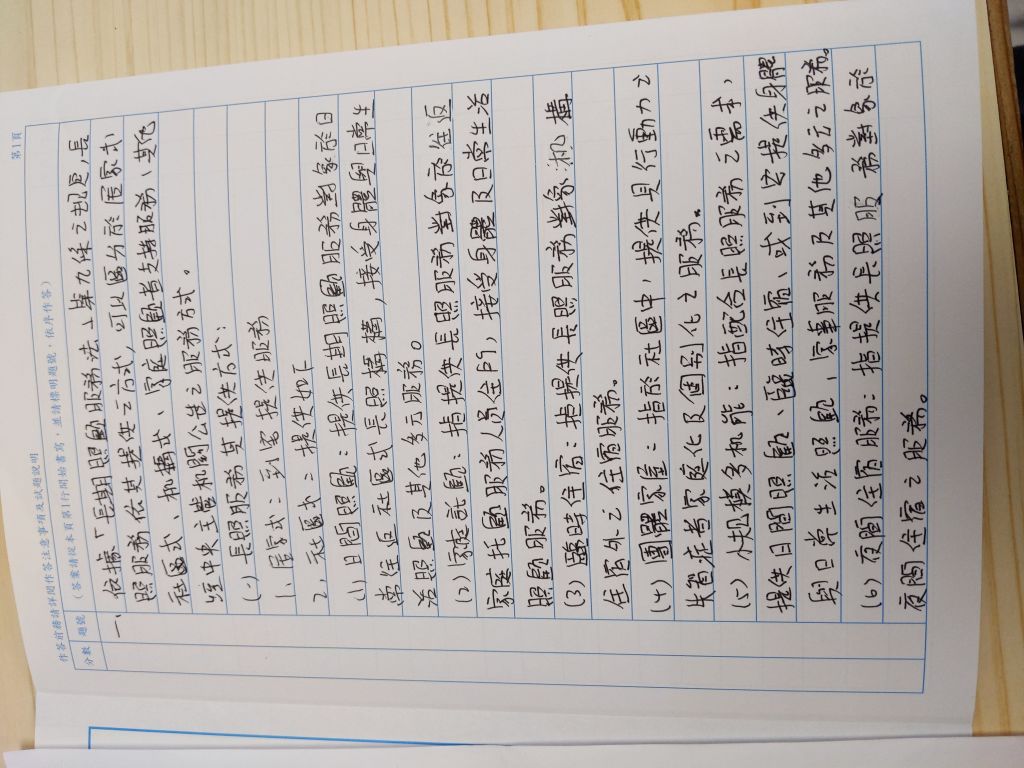 第1頁
作答前務請詳閱作答注意事項及試題說明
(答案請從本頁第1行開始書寫,並請標明題號,依序作答)
分數 題號
一、 依據「長期照顧服務法」第九條之規定,長
照服務依其提供之方式,可以區分於居家式
社區式、机構式、家庭照顧者支持服務、其他
經中央主管机關公告之服務方式。
(一) 長照服務其提供方式:
1. 居家式:到宅提供服務
2. 社區式:提供如下
(1) 日間照顧:提供長期照顧服務對象於日
常住居社區式長照機構,接受身體與日常生
活照顧及其他多元服務。
(2) 家庭託顧:指提供長照服務對象於往返
家庭托顧服務人員住所,接受身體及日常生活
照顧服務。
(3) 臨時住宿:指提供長照服務對象机構
住宿外之住宿服務。
(4) 團體家屋:指於社區中,提供具行動力之
失智症者家庭化及個別化之服務。
(5) 小規模多机能:指配合長照服務之需求,
提供日間照顧、臨時住宿、或到宅提供身體
與日常生活照顧、家事服務及其他多元之服務。
(6) 夜間住宿服務:指提供長照服務對象於
夜間住宿之服務。